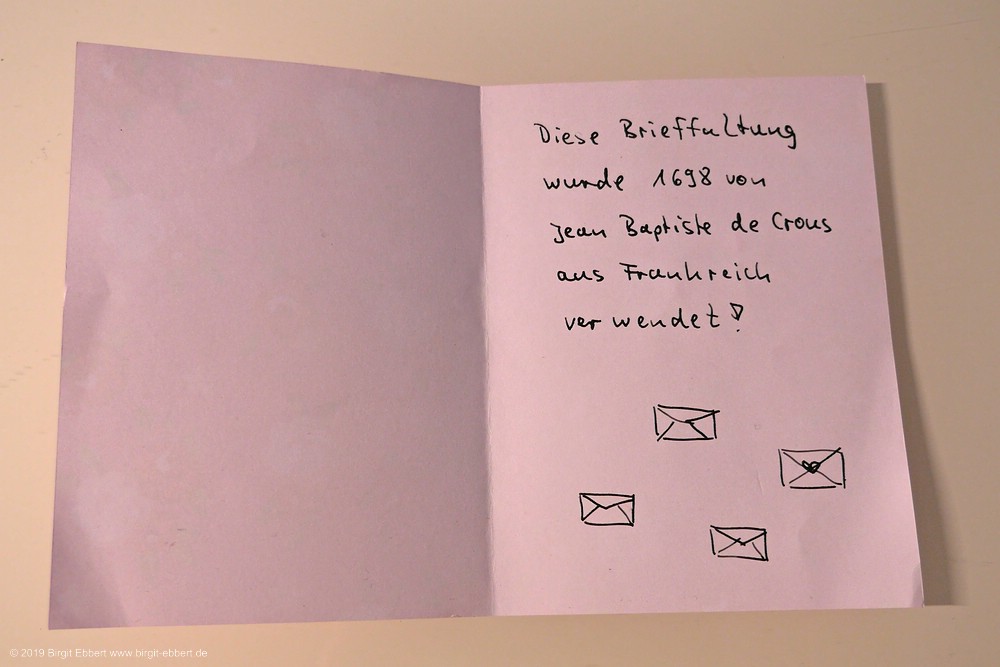 Diese Brieffaltung
wurde 1698 von
Jean Baptiste de Crous
aus Frankreich
verwendet!
© 2019 Birgit Ebbert www.birgit-ebbert.de